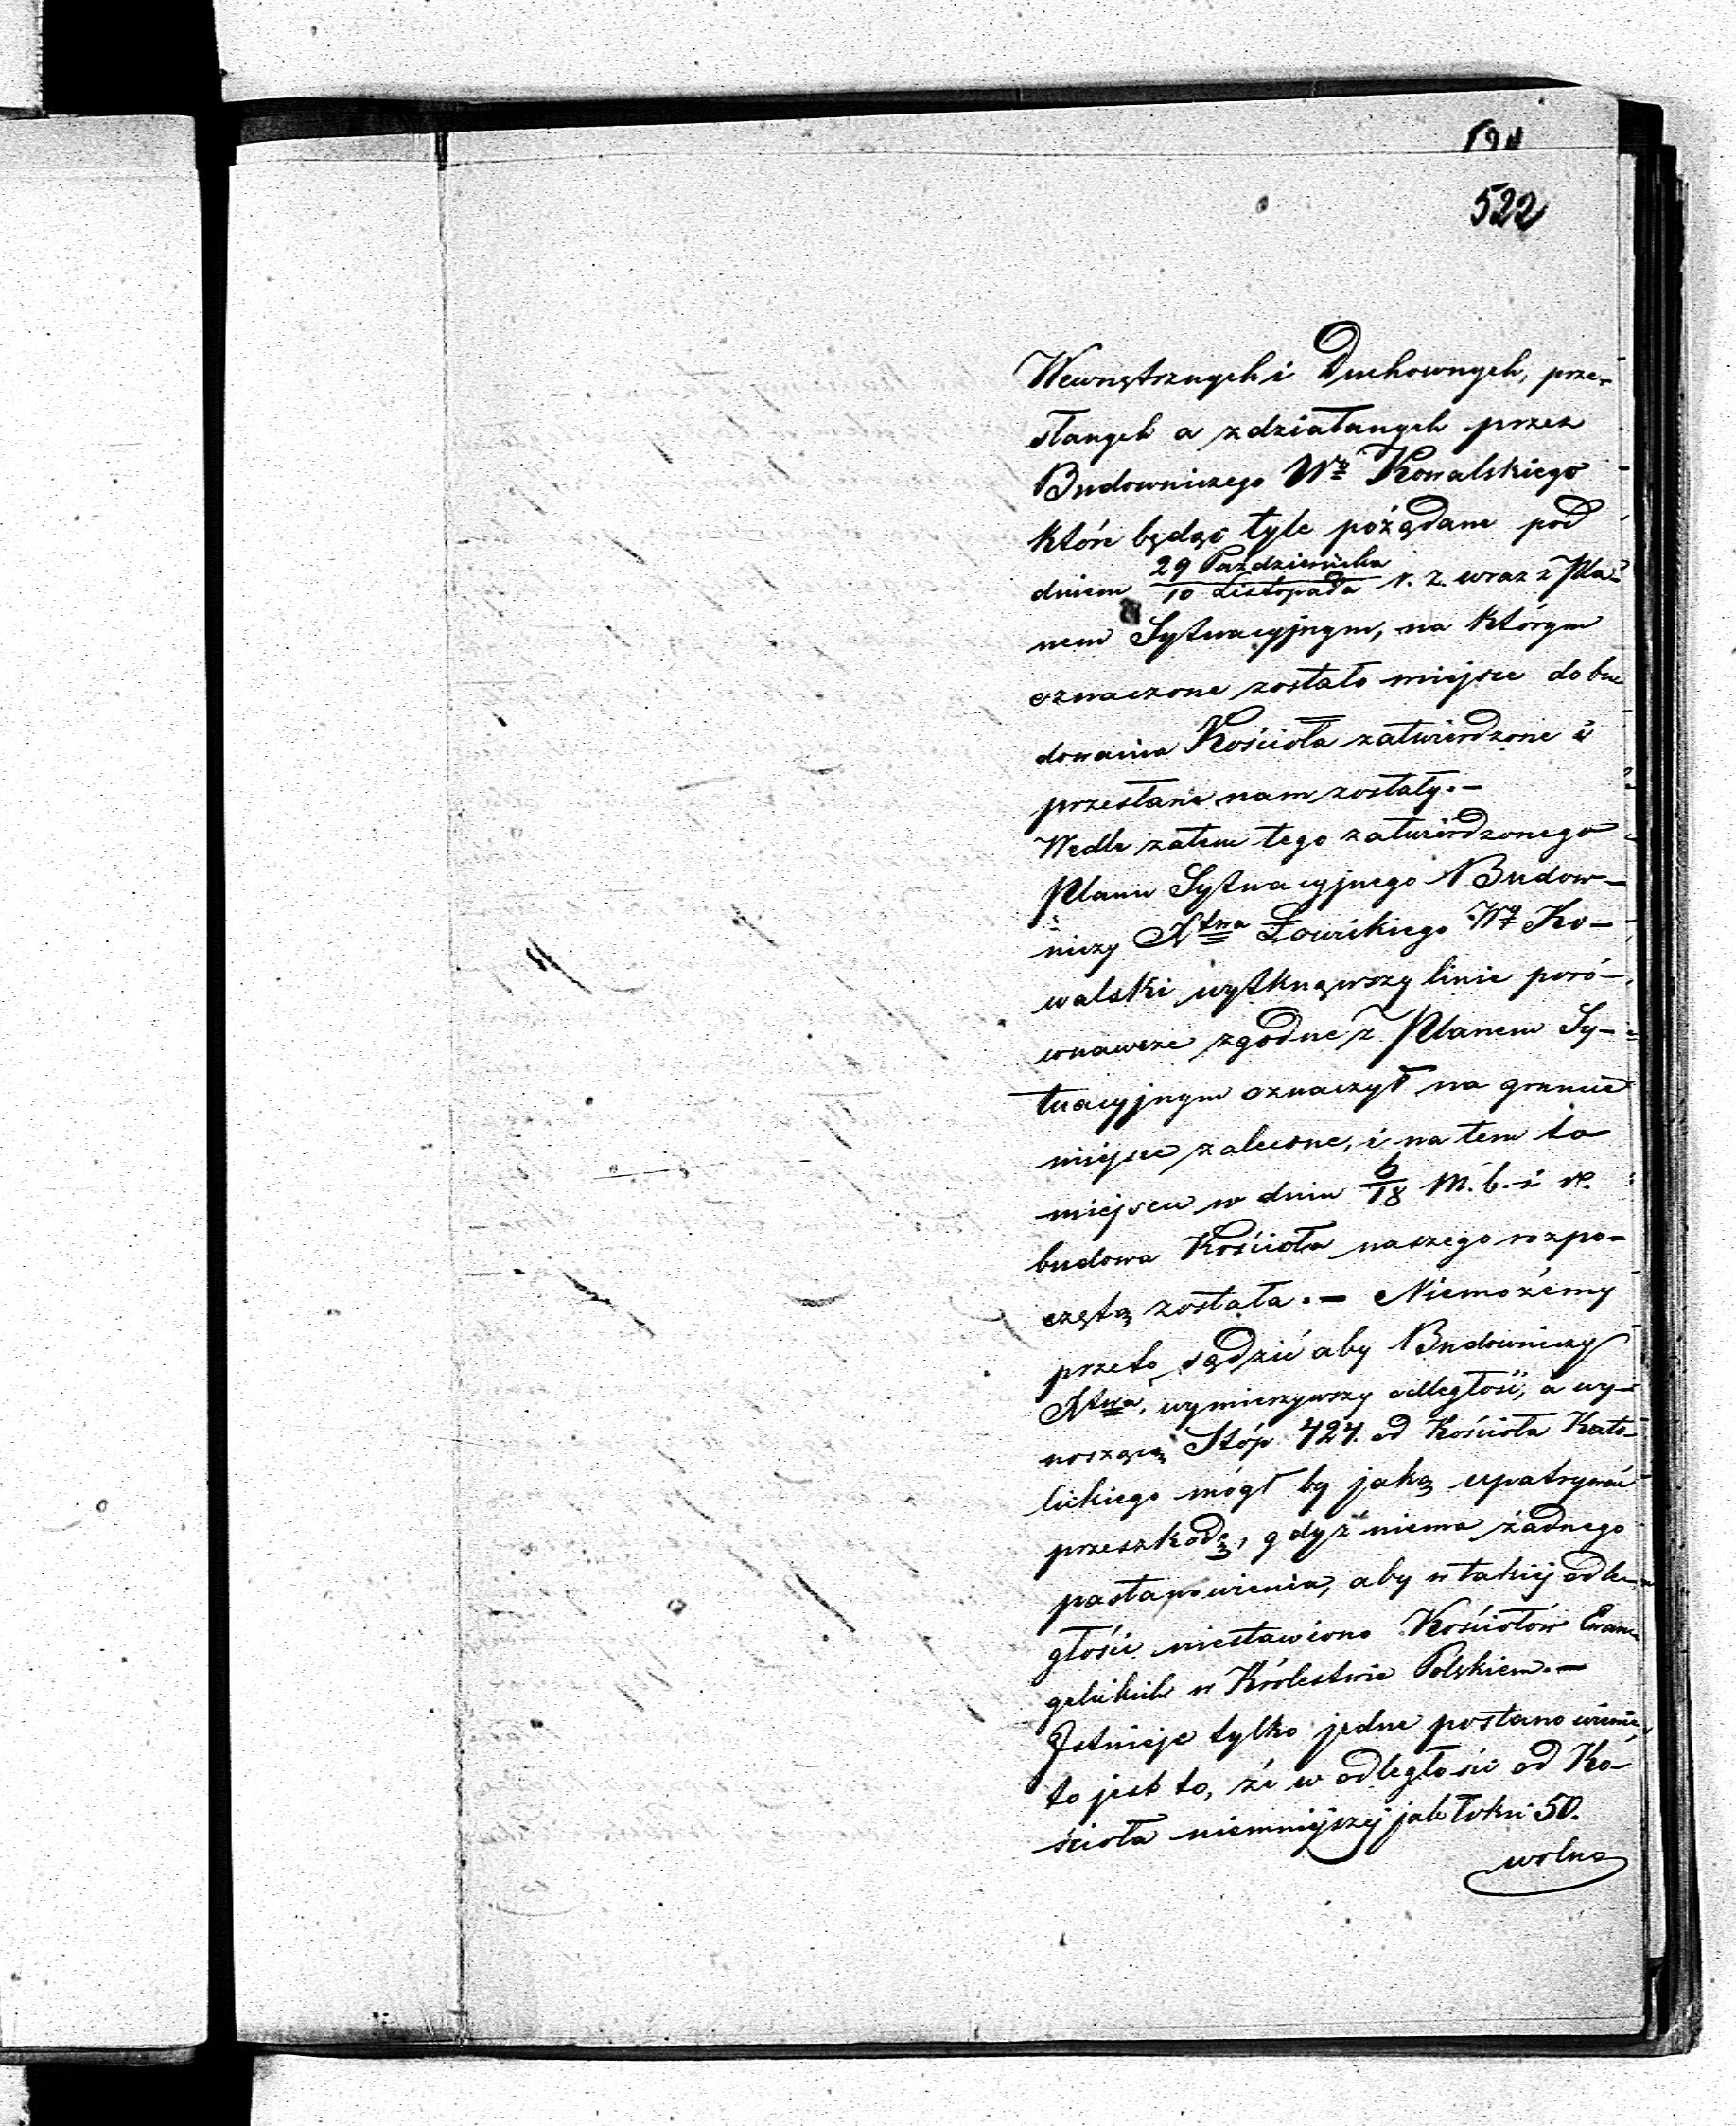 522
Wewnętrznych i Duchownych, prze-
słanych a zdziałanych przez
Budowniczego Wº Kowalskiego
które będąc tyle pożądane pod
dniem 29 Października / 10 Listopada r. z. wraz z Pla-
nem Sytuacyjnym, na którym
oznaczone zostało miejsce do bu
dowania Kościoła zatwierdzone i
przesłane nam zostały. –
Wedle zatem tego zatwierdzonego
Planu Sytuacyjnego Budow-
niczy Xtwa Łowickiego Wy Ko-
walski wytknąwszy linie poró-
wnawcze zgodne z Planem Sy-
tuacyjnym oznaczył na gruncie
miejsce zalecone, i na tem to
miejscu w dniu 6/18 M. b. i r.
budowa Kościoła naszego rozpo-
czętą została. – Niemożemy
przeto sądzić aby Budowniczy
Xtwa, wymierzywszy odległość, a wy-
noszącą Stóp 424. od Kościoła Kato-
lickiego mógł by jaką upatrywać
przeszkodę, gdyż niema żadnego
postanowienia, aby w takiej odle-
głości niestawiono Kościołów Ewan-
gelickich w Królestwie Polskiem. –
Istnieje tylko jedne postanowienie
to jest to, że w odległości od Ko-
ścioła niemniejszej jak łokci 50.
wolno